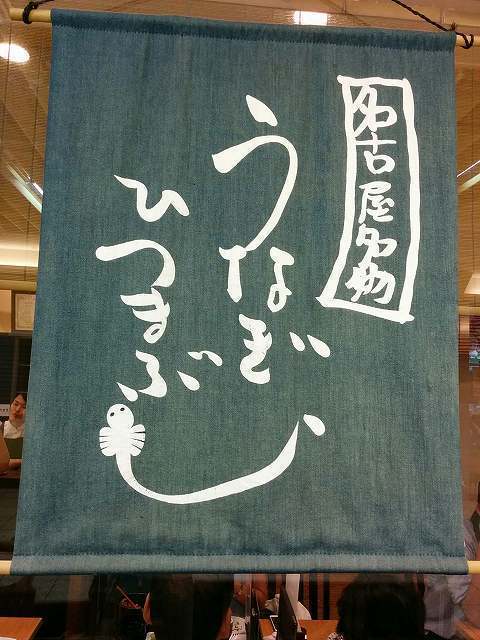 名古屋名物
うなぎ
ひつまぶし